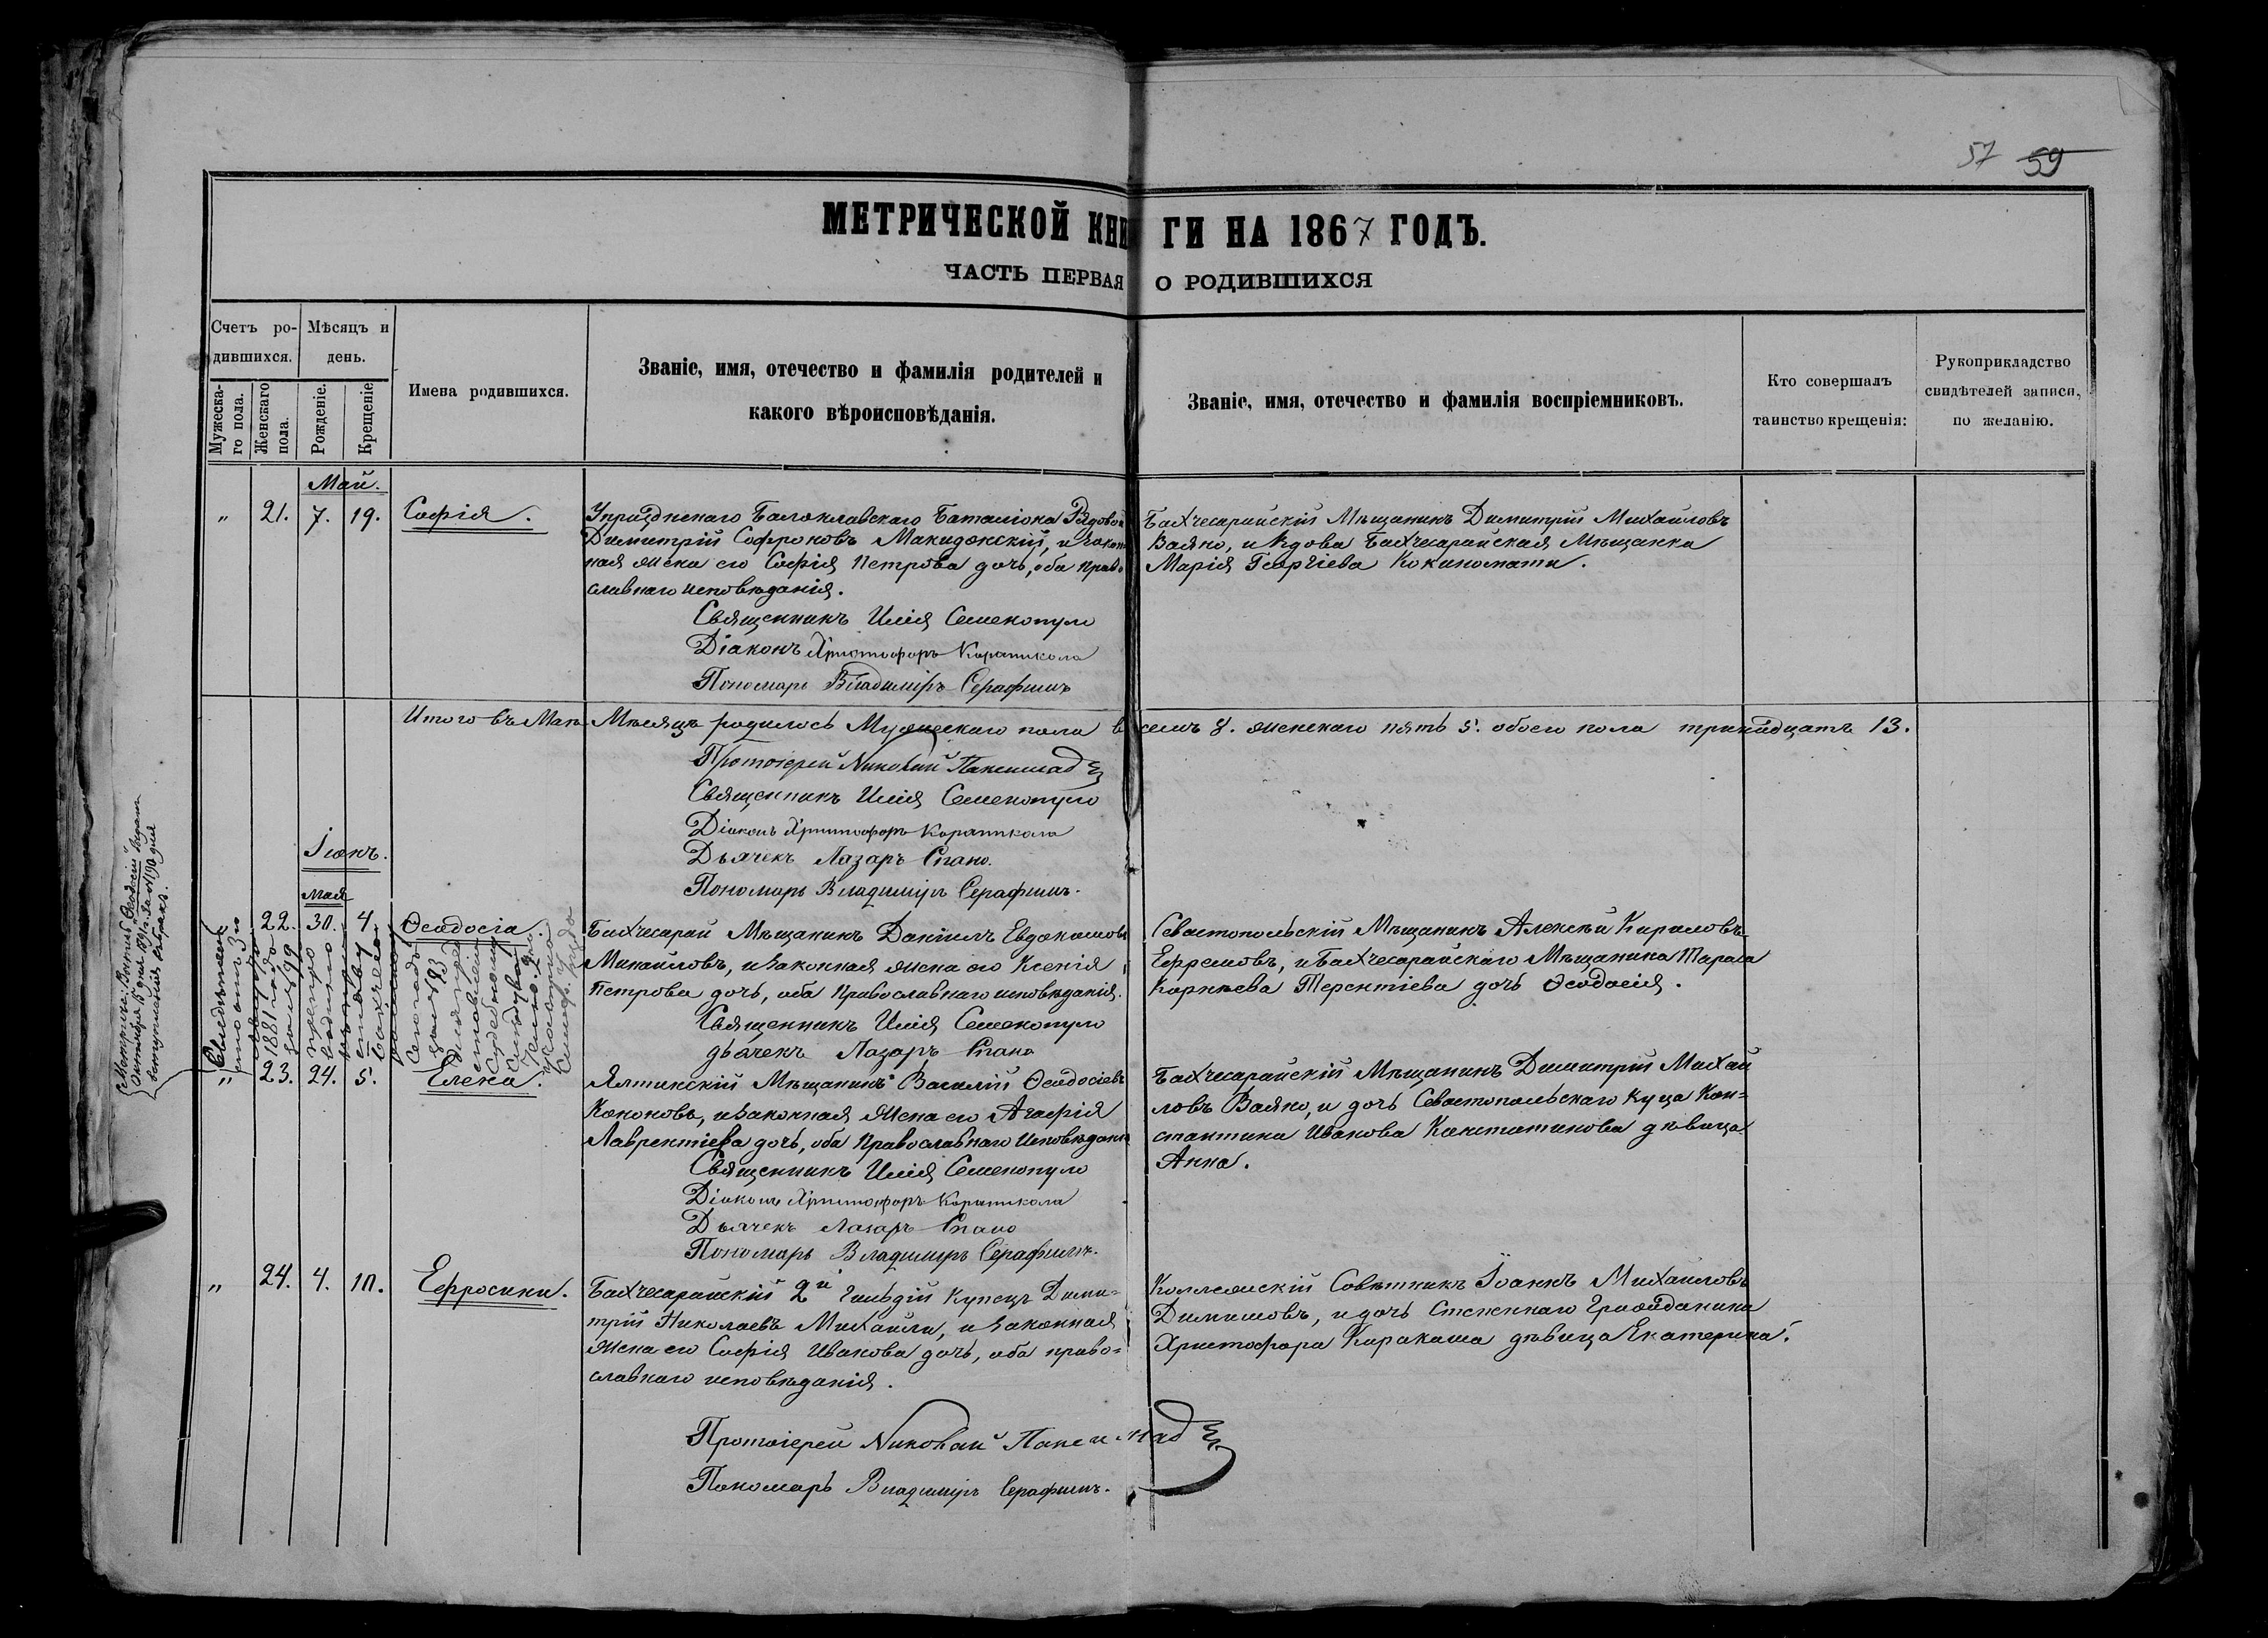 57 59
МЕТРИЧЕСКОЙ КНИГИ НА 1867 ГОДЪ.
ЧАСТЬ ПЕРВАЯ О РОДИВШИХСЯ
Счетъ ро-
дившихся.
Мужеска-
го пола.
Женскаго
пола.
Мѣсяцъ и
день.
Рожденіе.
Крещеніе
Имена родившихся.
Званіе, имя, отечество и фамилія родителей и
какого вѣроисповѣданія.
Званіе, имя, отечество и фамилія воспріемниковъ.
Кто совершалъ
таинство крещенія:
Рукоприкладство
свидѣтелей записи,
по желанію.
Май.
" 21. 7. 19. Софія.
Упраздненаго Балоклавскаго Баталіона Рядовой
Димитрій Софроновъ Макидонскій, и закон
ная жена его Софія Петрова дочь, оба право
славнаго исповѣданія.
Священникъ Илія Семенопуло
Діаконъ Христофоръ Каратикола
Пономарь Владиміръ Серафимъ
Бахчесарайскій Мѣщанинъ Димитрій Михайловъ
Ваяно, и вдова Бахчесарайская Мѣщанка
Марія Георгіева Кокиномати.
Итого въ Маѣ Мѣсяцѣ родилось Мужескаго пола восемъ 8. женскаго пять 5. обоего пола тринадцать 13.
Протоіерей Николай
Священникъ Илія Семенопуло
Діаконъ Христофоръ Каратикола
Дьячекъ Лазарь Спано.
Пономарь Владиміръ Серафимъ.
Іюнь.
мая
22. 30. 4. Ѳеодосіа.
Бахчесарай Мѣщанинъ Даніилъ Евдокимовъ
Михайловъ, и законная жена его Ксенія
Петрова дочь, оба православнаго исповѣданія.
Священникъ Илія Семенопуло
дьячекъ Лазарь Спано
Севастопольскій Мѣщанинъ Алексѣй Кириловъ
Ефремовъ, и Бахчесарайскаго Мѣщанина Тараса
Корнѣева Терентіева дочь Ѳеодосія.
" 23. 24. 5. Елена.
Ялтинскій Мѣщанинъ Василій Ѳеодосіевъ
Кононовъ, и законная жена его Агафія
Лаврентіева дочь, оба Православнаго Исповѣданія
Священникъ Илія Семенопуло
Діаконъ Христофоръ Каратикола
Дьячекъ Лазарь Спано
Пономарь Владиміръ Серафимъ.
Бахчесарайскій Мѣщанинъ Димитрій Михай
ловъ Ваяно, и дочь Севастопольскаго Купца Кон=
стантина Иванова Константинова дѣвица
Анна.
" 24. 4. 10. Ефросини.
Бахчесарайскій 2й Гильдій Купецъ Дими=
трій Николаевъ Михайли, и законная
жена его Софія Иванова дочь, оба право=
славнаго исповѣданія.
Протоіерей Николай
Пономарь Владиміръ Серафимъ.
Коллежскій Совѣтникъ Іоаннъ Михайловъ
, и дочь Степеннаго Гражданина
Христофора Каракаша дѣвица Екатерина.